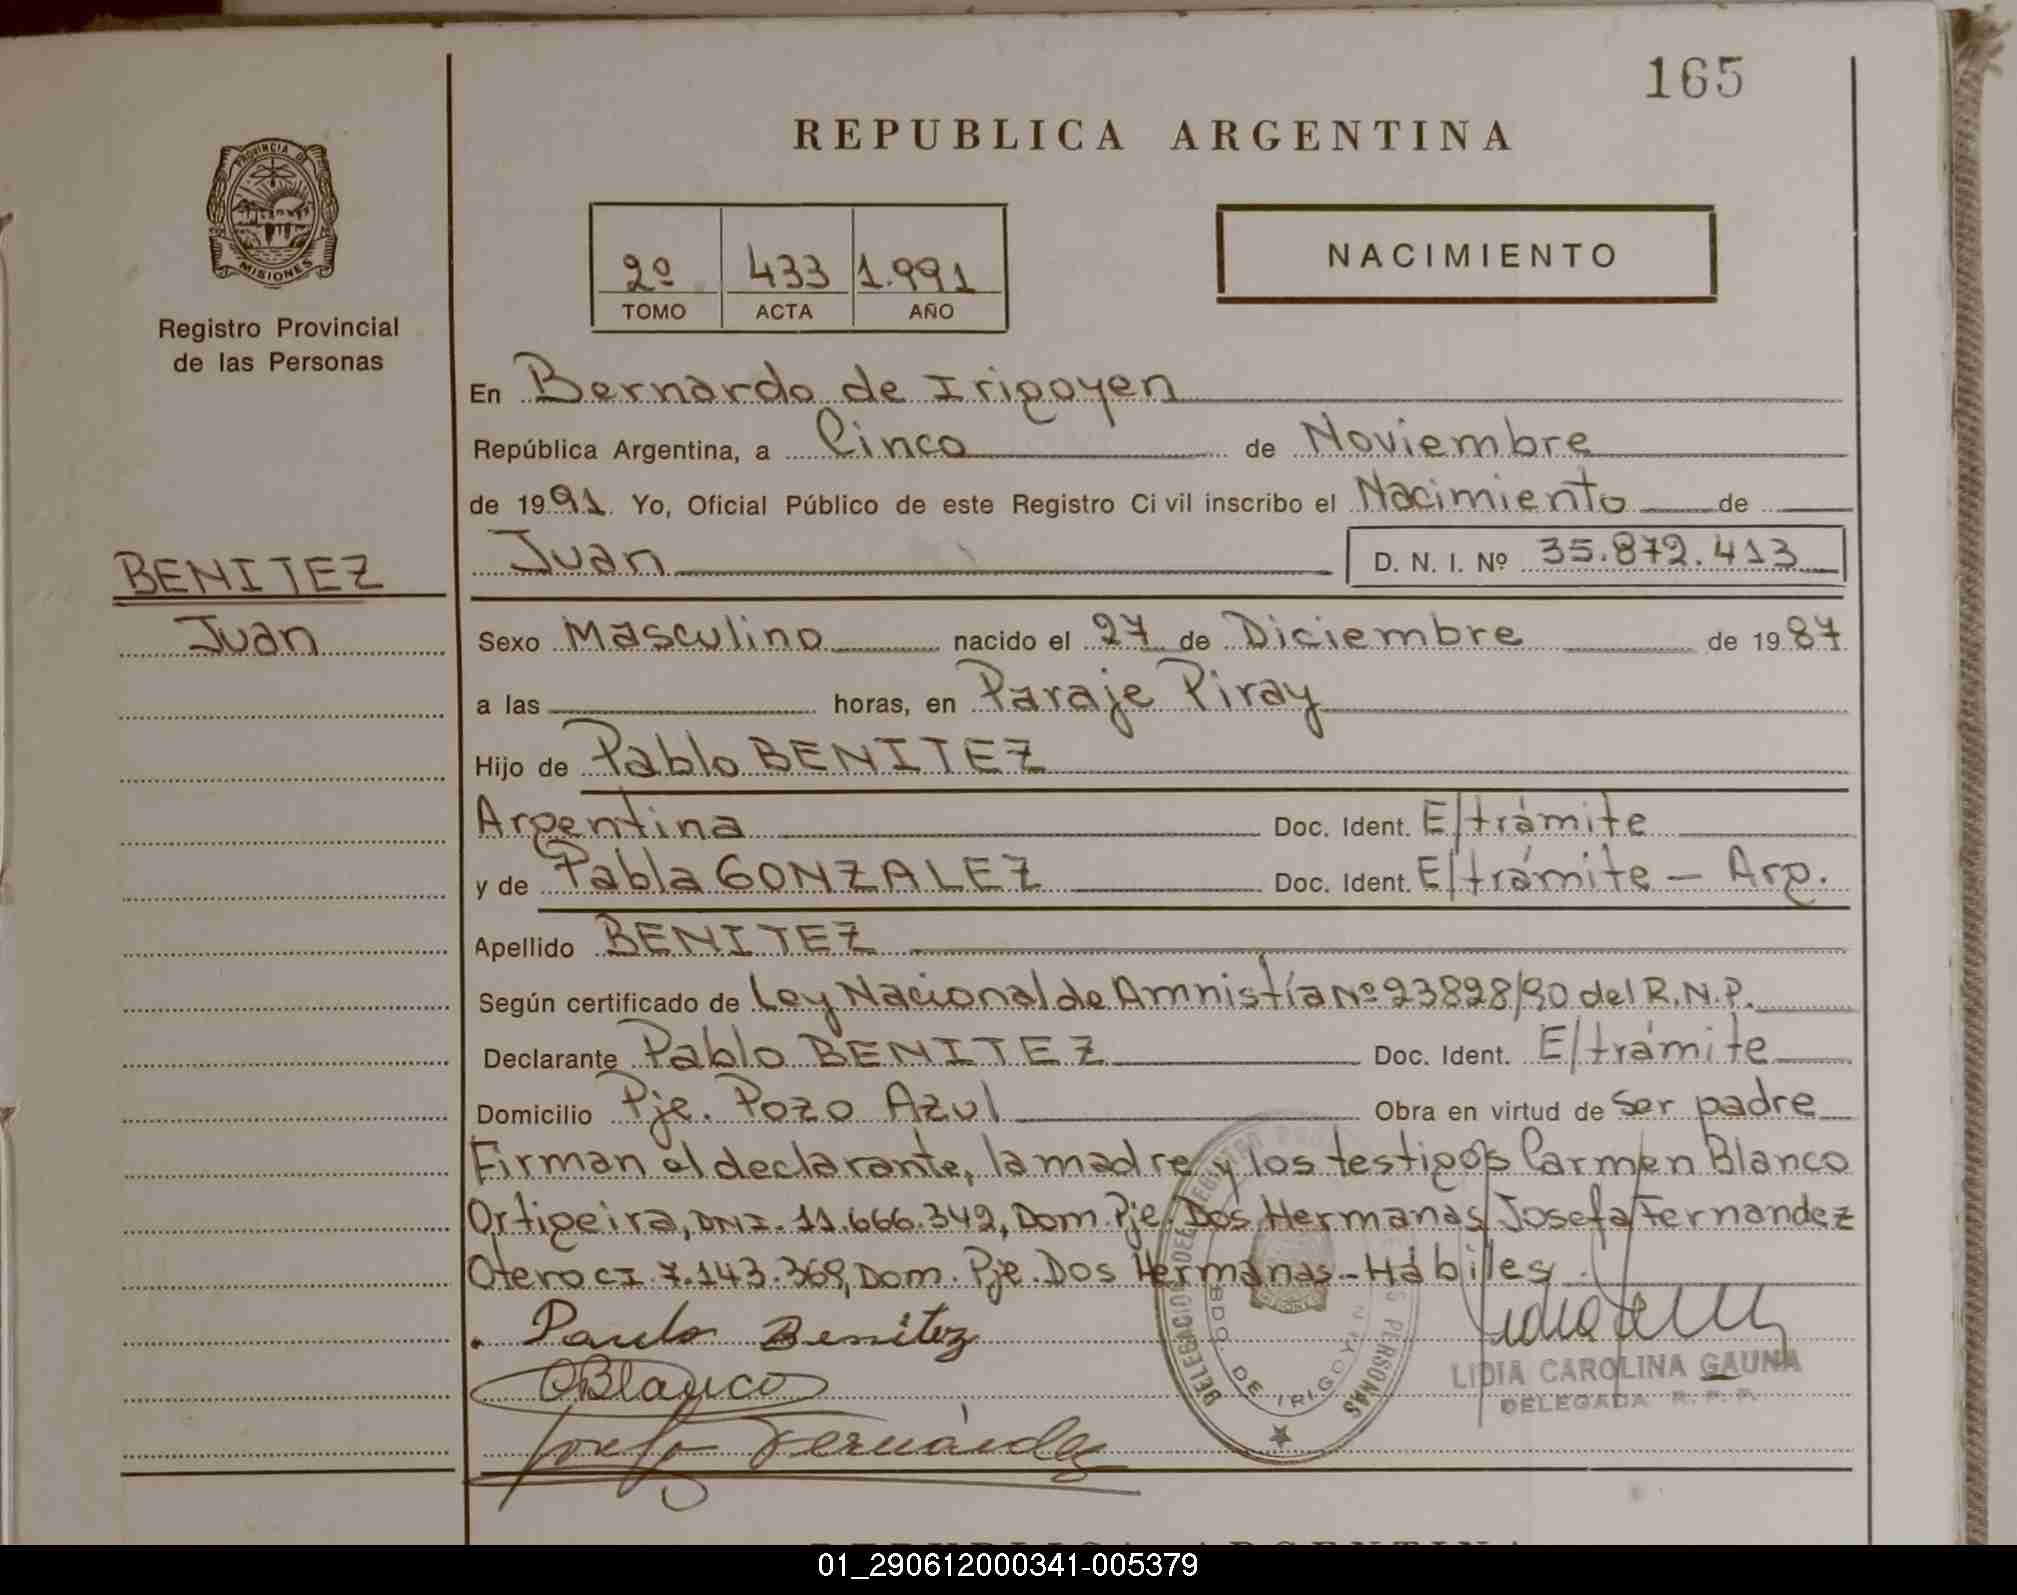 165
REPUBLICA ARGENTINA
PROVINCIA DE
MISIONES
Registro Provincial
de las Personas
2º 433 1.991
TOMO ACTA AÑO
NACIMIENTO
En Bernardo de Irigoyen
República Argentina, a Cinco de Noviembre
de 1991. Yo, Oficial Público de este Registro Ci vil inscribo el Nacimiento de
Juan D. N. I. Nº 35.872.413
BENITEZ
Juan
Sexo Masculino nacido el 27 de Diciembre de 1987
a las horas, en Paraje Piray
Hijo de Pablo BENITEZ
Argentina Doc. Ident. E/trámite
y de Pabla GONZALEZ Doc. Ident. E/trámite - Arg.
Apellido BENITEZ
Según certificado de Ley Nacional de Amnistía Nº 23828/90 del R.N.P.
Declarante Pablo BENITEZ Doc. Ident. E/trámite
Domicilio Pje. Pozo Azul Obra en virtud de Ser padre
Firman el declarante, la madre y los testigos Carmen Blanco
Ortigeira, DNI. 11.666.342, Dom. Pje. Dos Hermanas Josefa Fernandez
Otero CI 7.143.369, Dom. Pje. Dos Hermanas - Hábiles.
Paulo Benitez
CBlanco
Josefa Fernández
DELEGACION DEL REGISTRO PERSONAS
BDO. DE IRIGOYEN
LIDIA CAROLINA GAUNA
DELEGADA R. P. P.
REPUBLICA ARGENTINA
01_290612000341-005379